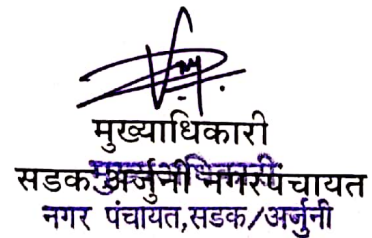 मुख्याधिकारी
सडक अर्जुनी नगरपंचायत
मुख्याधिकारी
नगर पंचायत,सडक/अर्जुनी